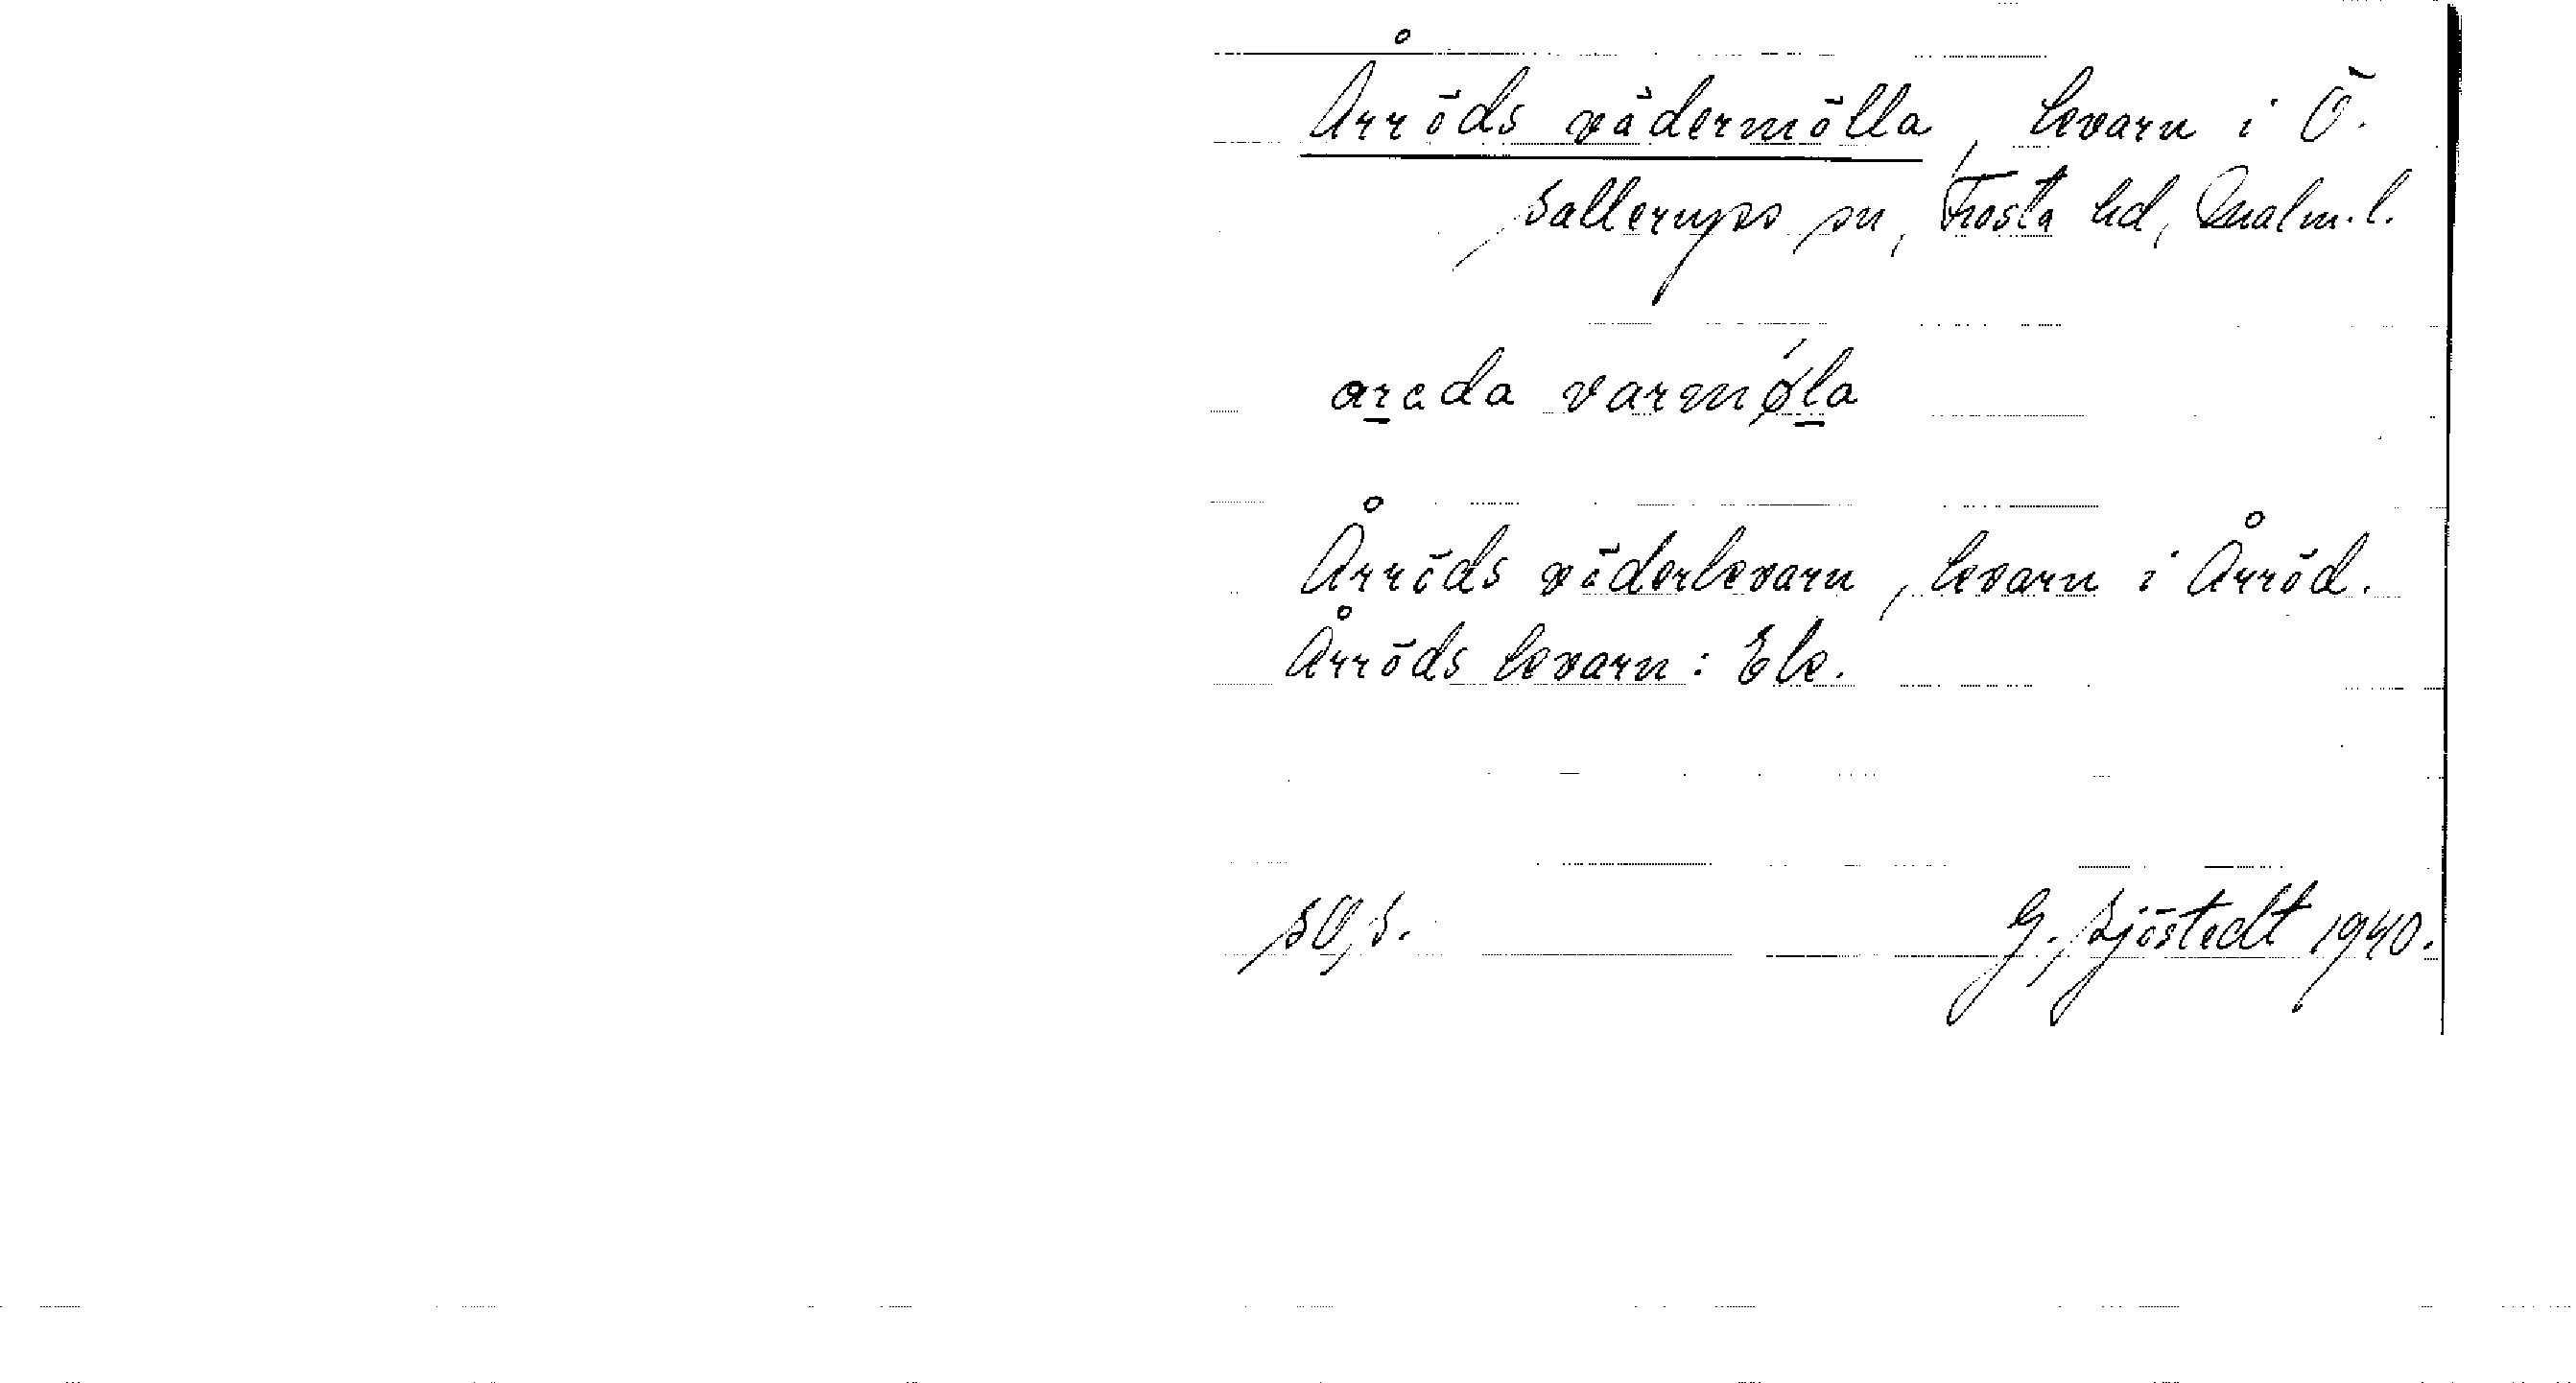 Årröds vädermölla, kvarn i Ö.
Sallerups sn, Frosta hd, Malm.l.
arada varmǿla
Årröds väderkvarn, kvarn i Årröd.
Årröds kvarn: Ek.
SOS.
G. Sjöstedt 1940.